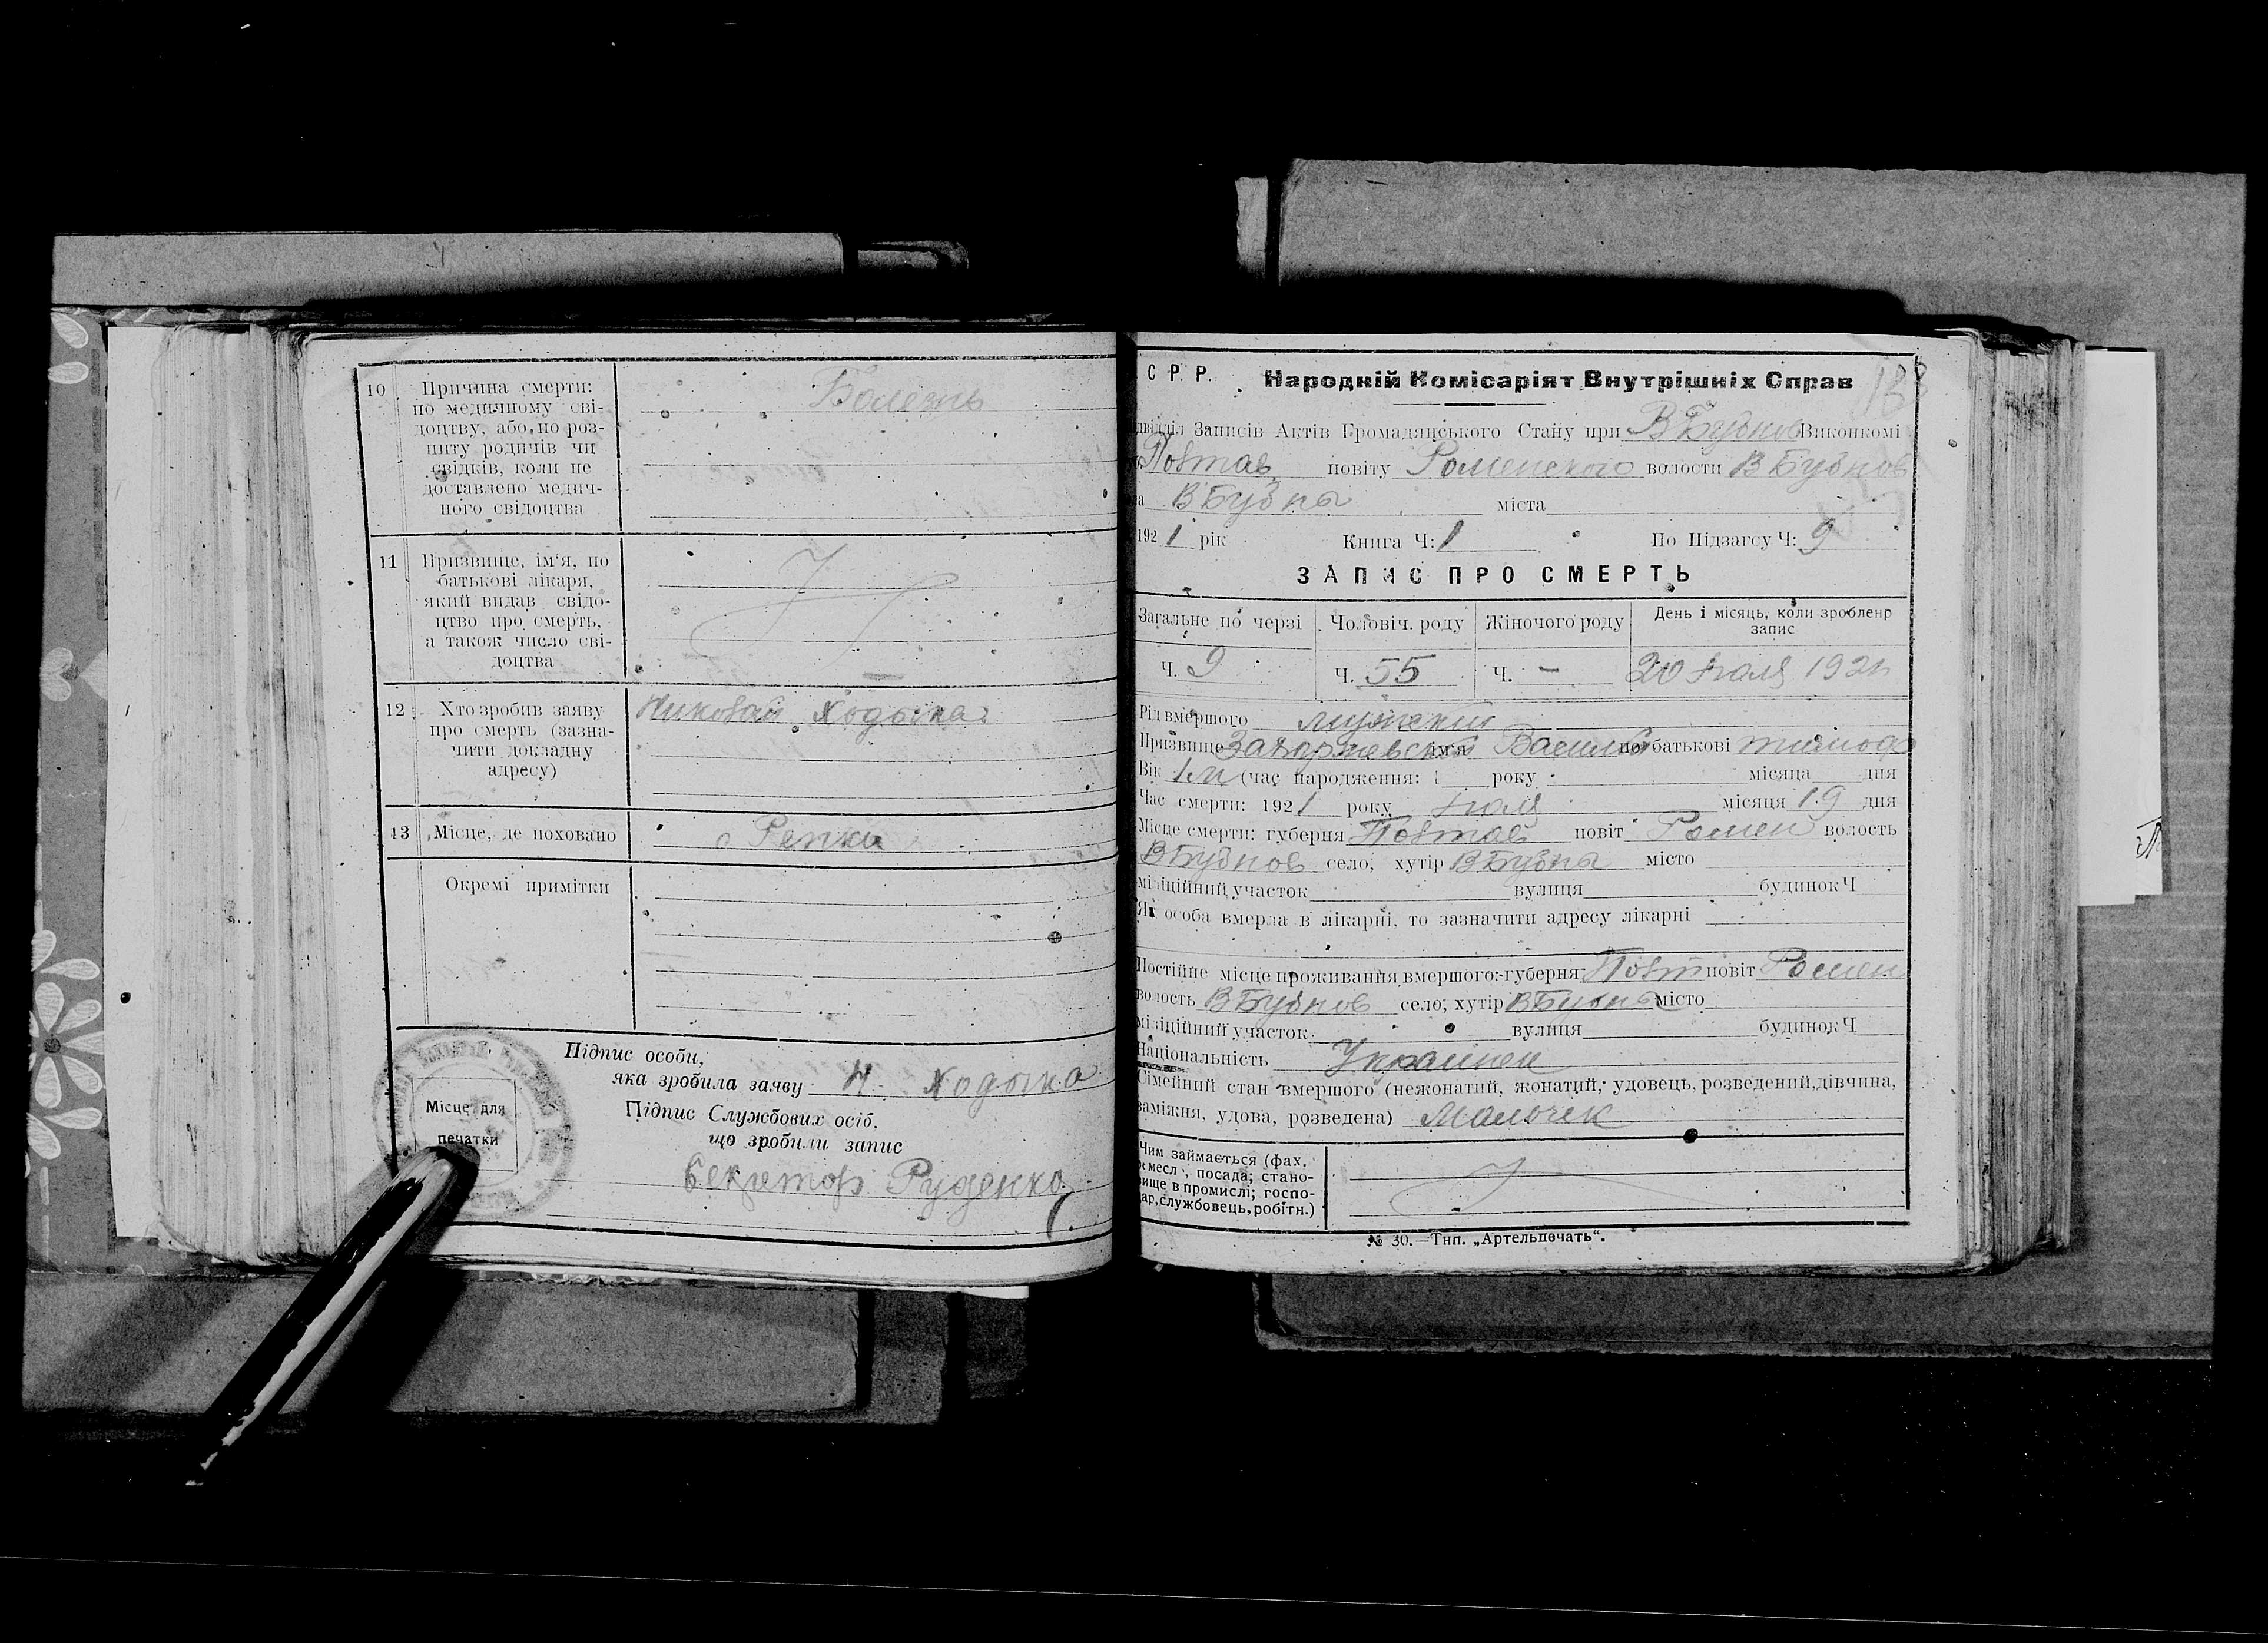 10 Причина смерти: Болезнь
по медичному сві-
доцтву, або, по роз-
питу родичів чи
свідків, коли не
доставлено медич-
ного свідоцтва
11 Призвище, ім'я, по
батькові лікаря,
який видав свідо-
цтво про смерть,
а також число сві-
доцтва
12 Хто зробив заяву Николай Ходыка
про смерть (зазна-
чити докладну
адресу)
13 Місце, де поховано с Репки
Окремі примітки
Місце для
печатки
Підпис особи,
яка зробила заяву Н Ходыка
Підпис Службових осіб.
що зробили запис
Секретар Руденко
С Р. Р. Народній Комісаріят Внутрішніх Справ
двідділ Записів Актів Громадянського Стану при В Бубнов Виконкомі
Полтав повіту Роменского волости В Бубнов
а В Бубны міста
1921 рік Книга Ч: 1 По Підзагсу Ч: 9
ЗАПИС ПРО СМЕРТЬ
Загальне по черзі Чоловіч. роду Жіночого роду День і місяць, коли зроблено
запис
Ч. 9 Ч. 55 Ч. — 20 Июля 1921
Рід вмершого мужский
Призвище Захаржевский ім'я Василий по батькові Тимоф
Вік 1 м (час народження: 1 року місяца дня
Час смерти: 1921 року Июля місяця 19 дня
Місце смерти: губерня Полтав повіт Ромен волость
В Бубнов село, хутір В Бубны місто
міліційний участок вулиця будинок Ч
Як особа вмерла в лікарні, то зазначити адресу лікарні
Постійне місце проживання вмершого: губерня Полт повіт Ромен
волость В Бубнов село, хутір В Бубны місто
міліційний участок вулиця будинок Ч
Національність Украинец
Сімейний стан вмершого (нежонатий, жонатий, удовець, розведений, дівчина,
заміжня, удова, розведена) Мальчек
Чим займається (фах,
ремесл , посада; стано-
вище в промислі; госпо-
дар, службовець, робітн.)
№ 30.—Тип. „Артельпечать".